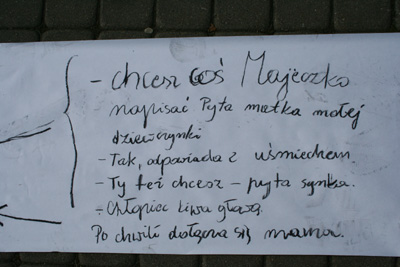 - chcesz coś Majeczko
napisać Pyta matka małej
dziewczynki
- Tak, odpowiada z uśmiechem.
- Ty też chcesz - pyta synka.
- Chłopiec kiwa głową.
Po chwili dołącza się mama.